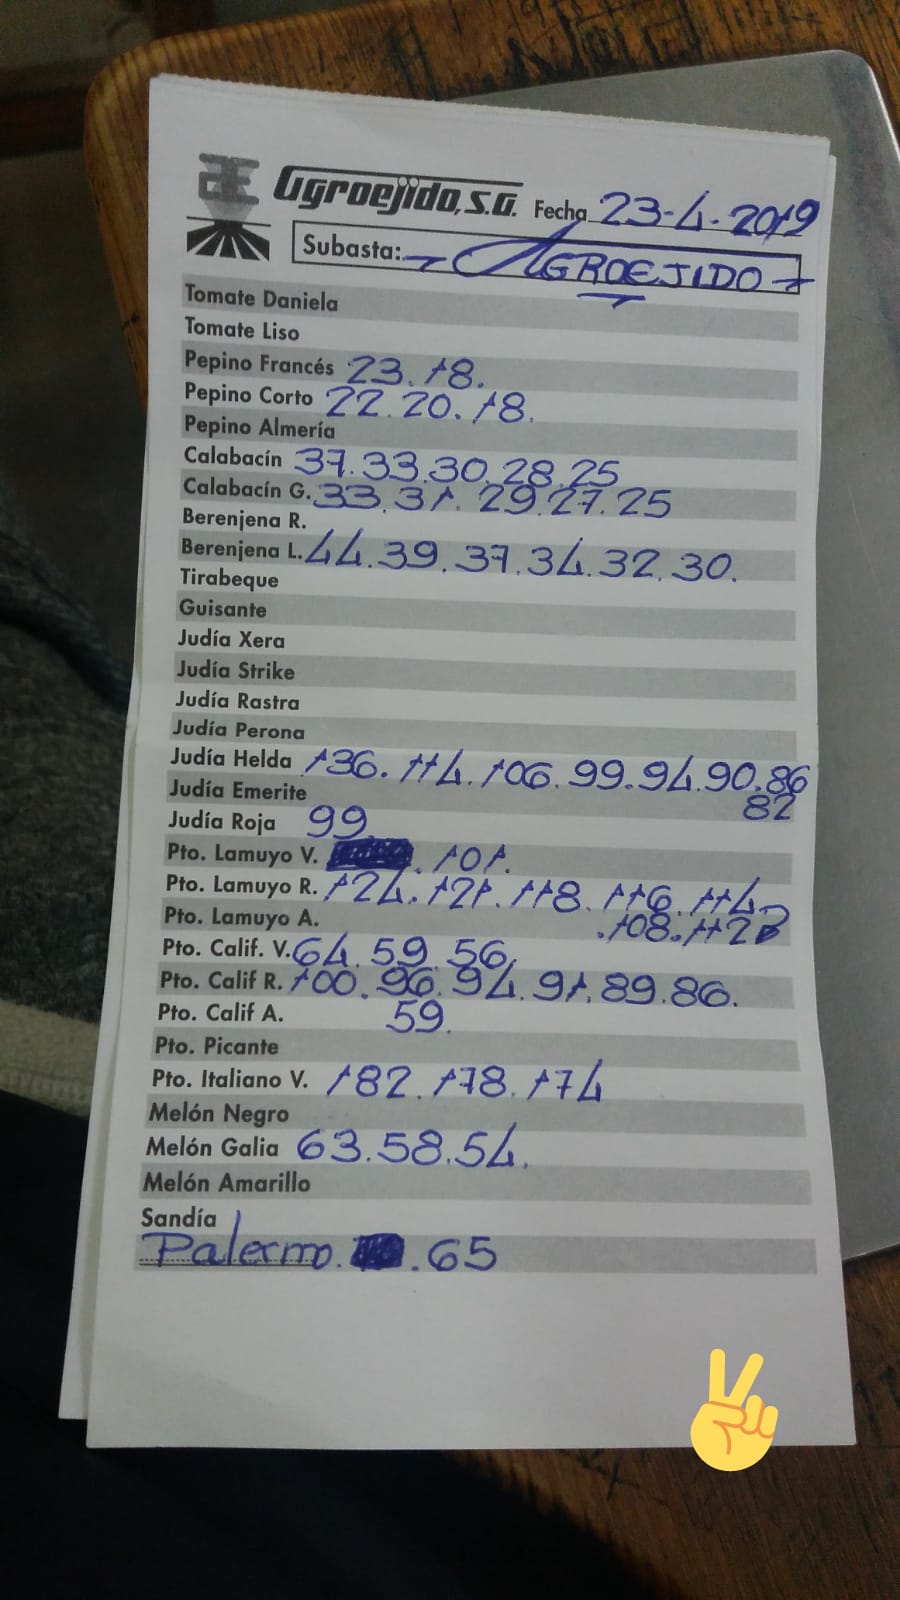 Agroejido, S.A. Fecha 23-4-2019
Subasta: AGROEJIDO
Tomate Daniela
Tomate Liso
Pepino Francés 23.18.
Pepino Corto 22.20.18.
Pepino Almería
Calabacín 37.33.30.28.25
Calabacín G. 33.31.29.27.25
Berenjena R.
Berenjena L. 44.39.37.34.32.30.
Tirabeque
Guisante
Judía Xera
Judía Strike
Judía Rastra
Judía Perona
Judía Helda 136.114.106.99.94.90.86
82
Judía Emerite
Judía Roja 99
Pto. Lamuyo V. .101.
Pto. Lamuyo R. 124.121.118.116.114
.108.112
Pto. Lamuyo A.
Pto. Calif. V. 64.59.56
Pto. Calif R. 100.96.94.91.89.86.
Pto. Calif A. 59.
Pto. Picante
Pto. Italiano V. 182.178.174
Melón Negro
Melón Galia 63.58.54.
Melón Amarillo
Sandía
Palermo. .65